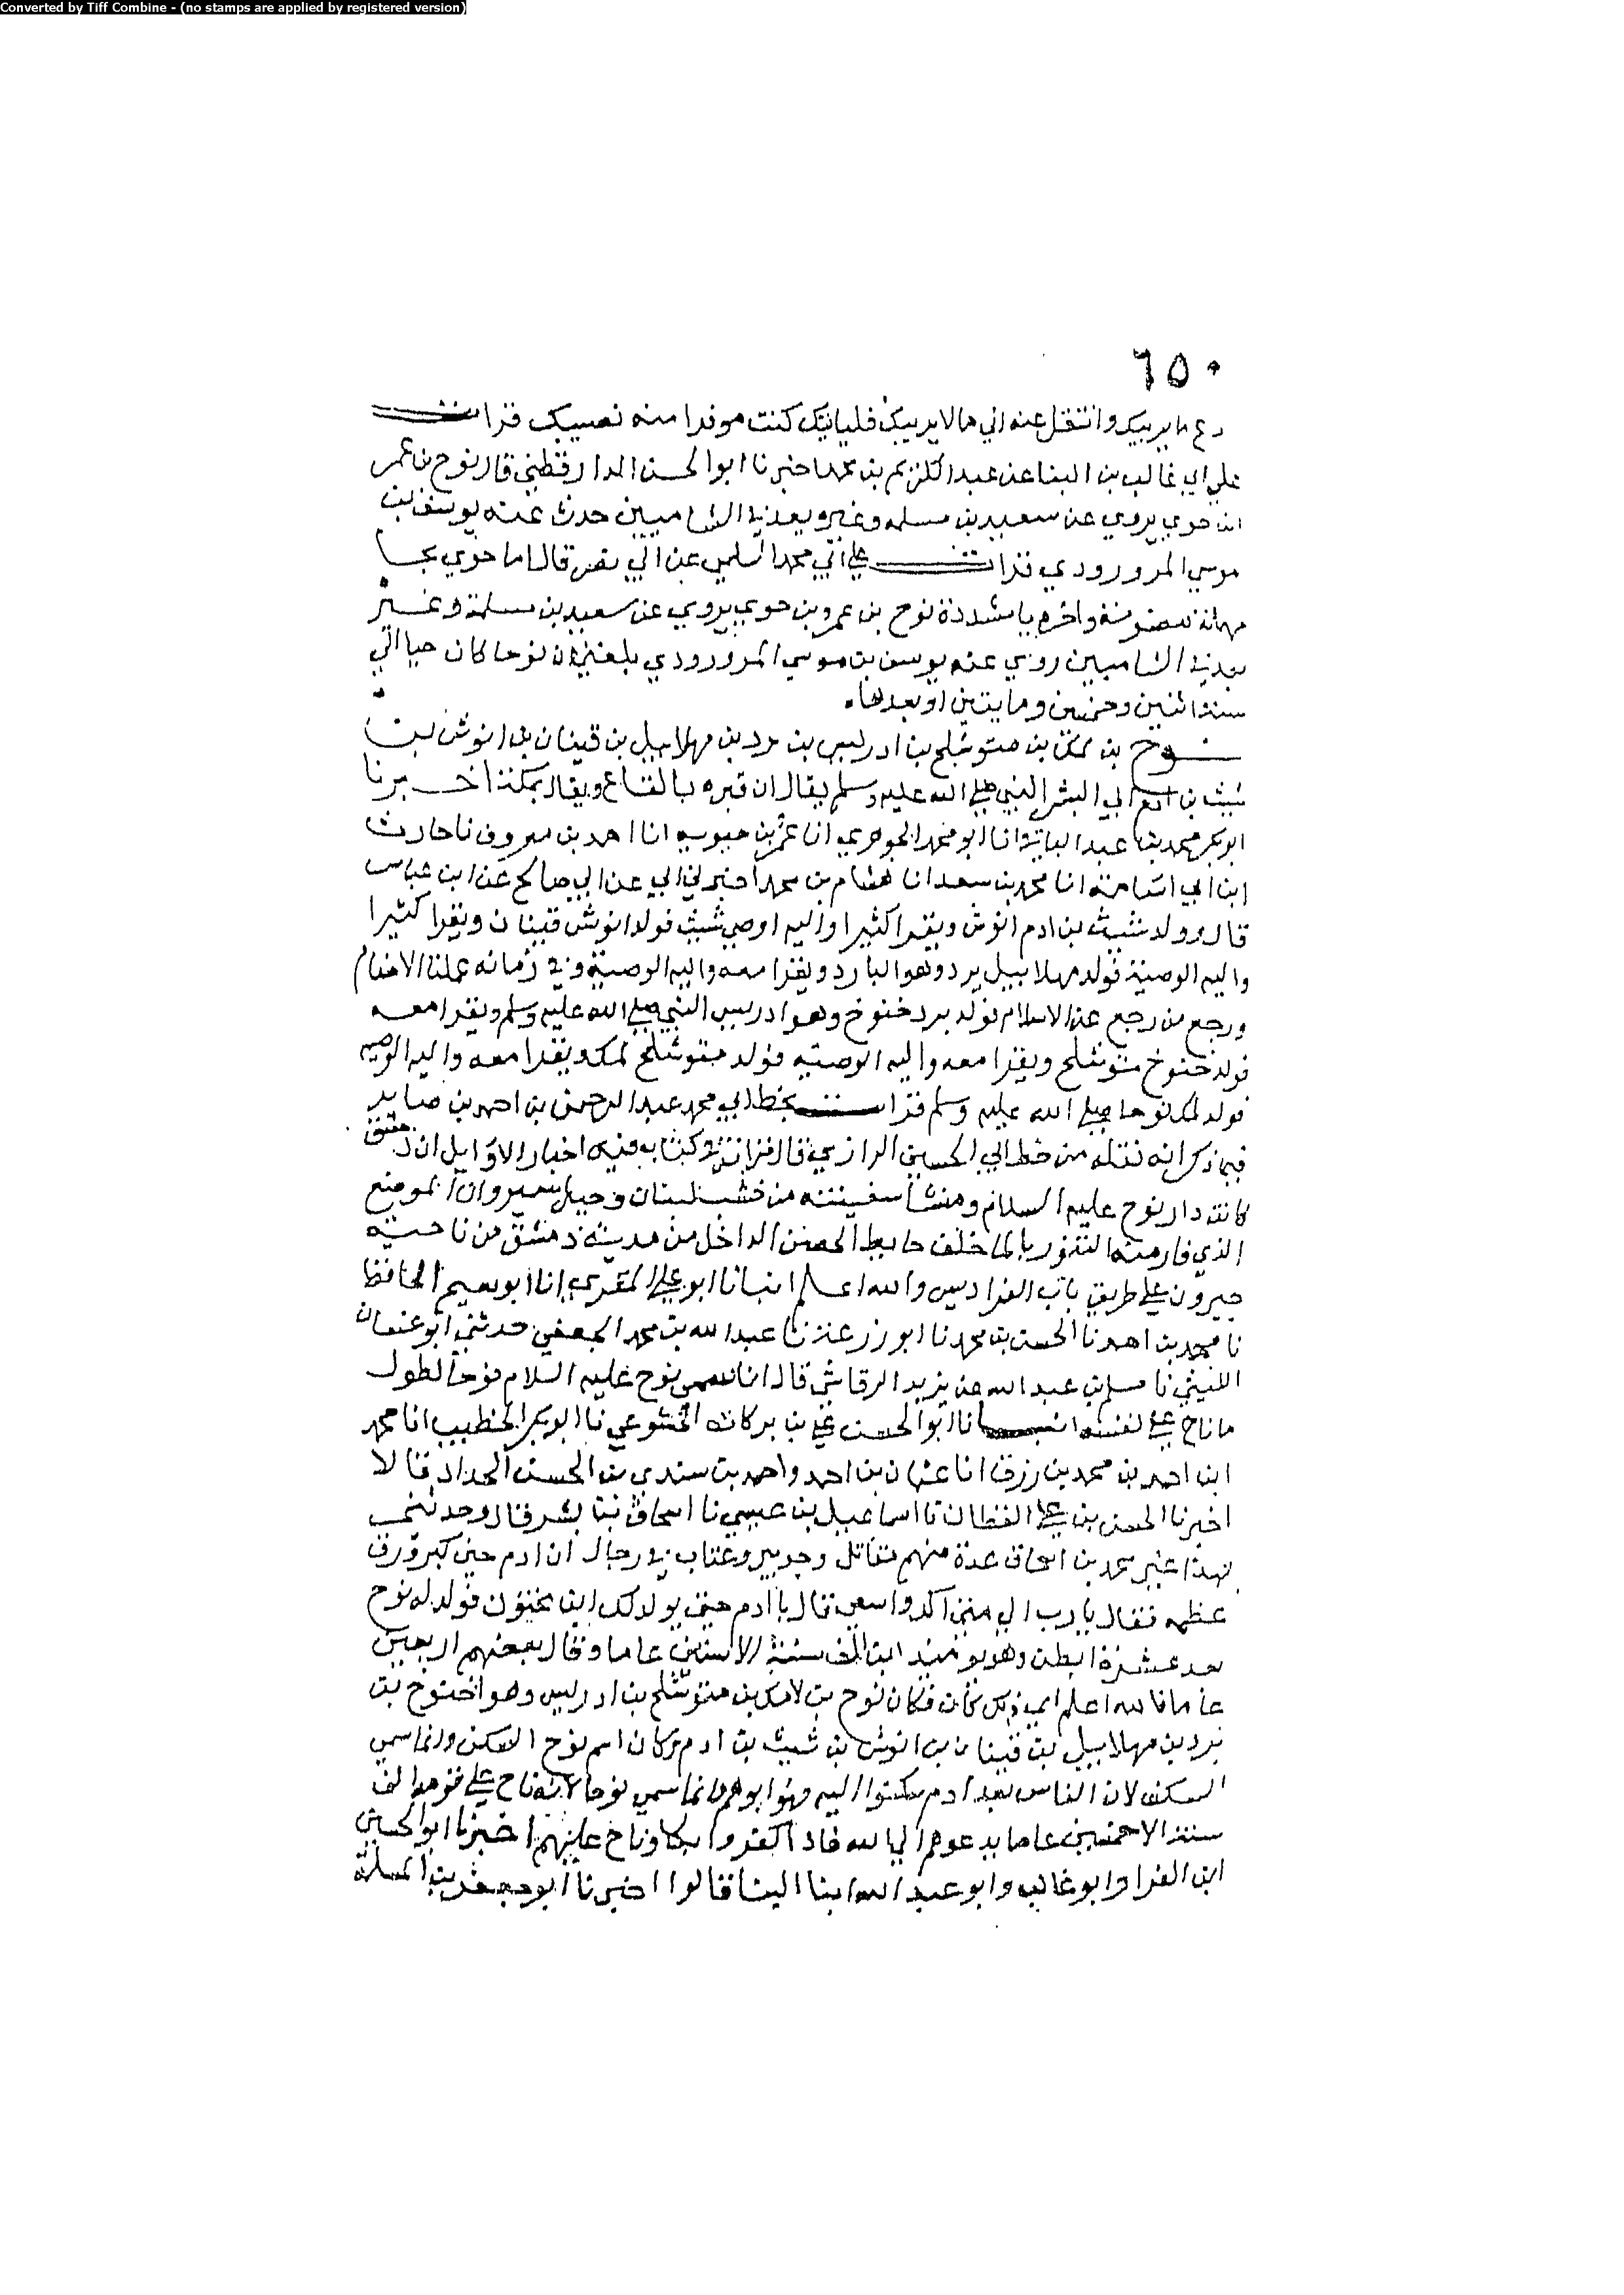 Converted by Tiff Combine - (no stamps are applied by registered version)
٦٥٠
دع ما يريبك وانتقل عنه الي ما لا يريبك فلياتيك كنت موفدا منه نصيبك قرات
علي ابي غالب بن البنا عن عبد الكريم بن محمد اخبرنا ابو الحسن الدارقطني قال نوح بن عمر
ابن حوي يروي عن سعيد بن مسلمه وغيره يعد في الشاميين حدث عنه يوسف بن
موسي المرورودي قرات علي ابي محمد السلمي عن ابي نصر قال اما حوي بحا
مهملة مضمومة واخره يا مشددة نوح بن عمرو بن حوي يروي عن سعيد بن مسلمة وغير
يعد في الشاميين روي عنه يوسف بن موسي المرورودي بلغني ان نوحا كان حيا الي
سنة اثنين وخمسين ومايتين او بعدها
نوح بن لمك بن متوشلح بن ادريس بن يرد بن مهلاييل بن قينان بن انوش بن
شيث بن ادم ابي البشر النبي صلي الله عليه وسلم يقال ان قبره بالبقاع ويقال بمكة اخبرنا
ابو بكر محمد بن عبد الباقي انا ابو محمد الجوهري انا عمر بن حيويه انا احمد بن معروف نا حارث
ابن ابي اسامة انا محمد بن سعد انا هشام بن محمد اخبرني ابي عن ابي صالح عن ابن عباس
قال وولد شيث بن ادم انوش ونفرا كثيرا واليه اوصي شيث فولد انوش قينان ونفرا كثيرا
واليه الوصية فولد مهلاييل يرد وهو اليارد ونفرا معه واليه الوصية وفي زمانه عملت الاصنام
ورجع من رجع عن الاسلام فولد يرد خنوخ وهو ادريس النبي صلي الله عليه وسلم ونفرا معه
فولد خنوخ متوشلح ونفرا معه واليه الوصيه فولد متوشلح لمك ونفرا معه واليه الوصيه
فولد لمك نوحا صلي الله عليه وسلم قرات بخط ابي محمد عبد الرحمن بن احمد بن صابر
فيما ذكر انه نقله من خط ابي الحسين الرازي قال قرات في كتاب فيه اخبار الاوايل ان دمشق
كانت دار نوح عليه السلام ومنشا سفينته من خشب لبنان وجبل سنير وان الموضع
الذي فار منه التنور خلف حايط الحصن الداخل من مدينة دمشق من ناحية
جيرون علي طريق باب الفراديس والله اعلم انبانا ابو علي المقري انا ابو نعيم الحافظ
نا محمد بن احمد نا الحسن بن محمد نا ابو زرعة نا عبد الله بن محمد الجعفي حدثني ابو عثمان
الليثي نا مسلم بن عبد الله عن يزيد الرقاشي قال انما سمي نوح عليه السلام نوحا لطول
ما ناح علي نفسه انبانا ابو الحسن علي بن بركات الخشوعي نا ابو بكر الخطيب انا محمد
ابن احمد بن محمد بن رزق انا عثمان بن احمد واحمد بن سندي بن الحسن الحداد قالا
اخبرنا الحسن بن علي القطان نا اسماعيل بن عيسي نا اسحاق بن بشر قال وحدثني
بهذا غير محمد بن اسحاق عدة منهم مقاتل وجويبر وعتاب في رجال ان ادم حين كبر ورق
عظمه فقال يا رب الي متي اكد واسعي قال يا ادم حتي يولد لك ابن مختون فولد له نوح
بعد عشرة ابطن وهو يوميذ ابن الف سنة الا ستين عاما وقال بعضهم اربعين
عاما فالله اعلم اي ذلك كان فكان نوح بن لامك بن متوشلح بن ادريس وهو اخنوخ بن
يرد بن مهلاييل بن قينان بن انوش بن شيث بن ادم وكان اسم نوح السكن وانما سمي
السكن لان الناس بعد ادم سكنوا اليه وهو ابوهم وانما سمي نوحا لانه ناح علي قومه الف
سنة الا خمسين عاما يدعوهم الي الله فاذا كفروا بكا وناح عليهم اخبرنا ابو الحسين
ابن الفرا وابو غالب وابو عبد الله ابنا البنا قالوا اخبرنا ابو جعفر بن المسلمة